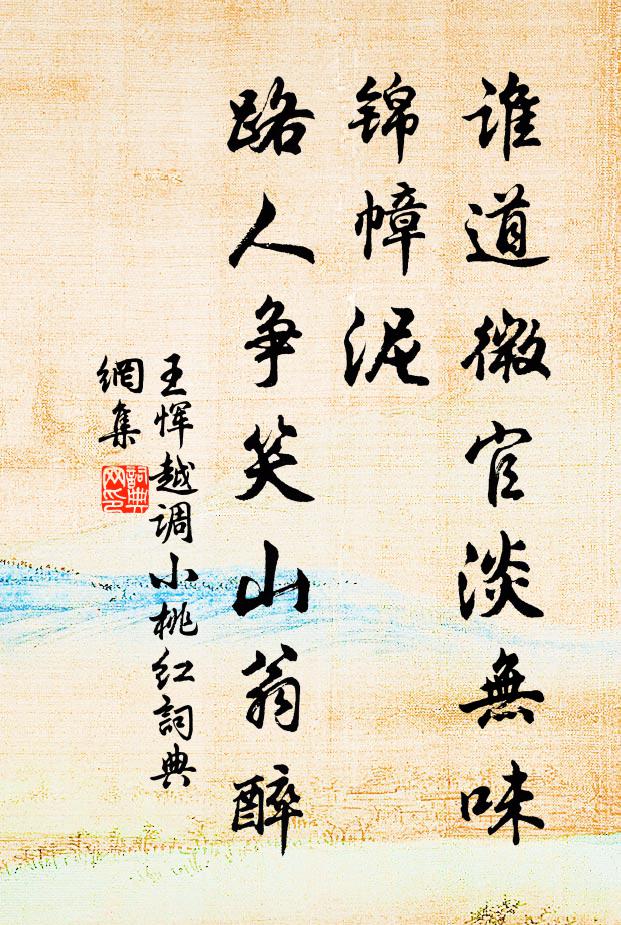 谁道微官淡無味
锦幛泥
路人争笑山翁醉
王恽越调小桃红詞典
網集
詞典
网印